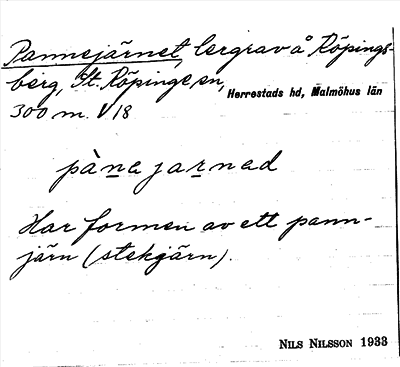 Pannejärnet, lergrav å Köpings-
berg, St. Köpinge sn,
Herrestads hd, Malmöhus län
300 m. V 18
pànejarnəd
Har formen av ett pann-
järn (stekjärn).
NILS NILSSON 1933